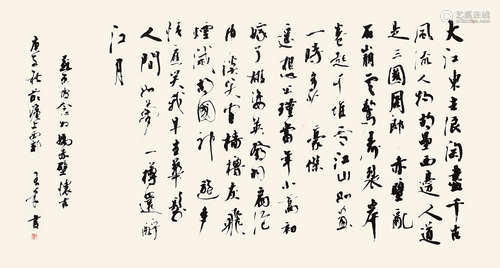 大江東去浪淘盡千古
風流人物故壘西邊人道
是三國周郎赤壁亂
石崩雲驚濤裂岸
卷起千堆雪江山如畫
一時多少豪傑
遥想公瑾當年小喬初
嫁了雄姿英發羽扇綸
巾談笑間檣櫓灰飛
煙滅故國神遊多
情應笑我早生華髮
人間如夢一樽還酹
江月
念奴嬌赤壁懷古
書